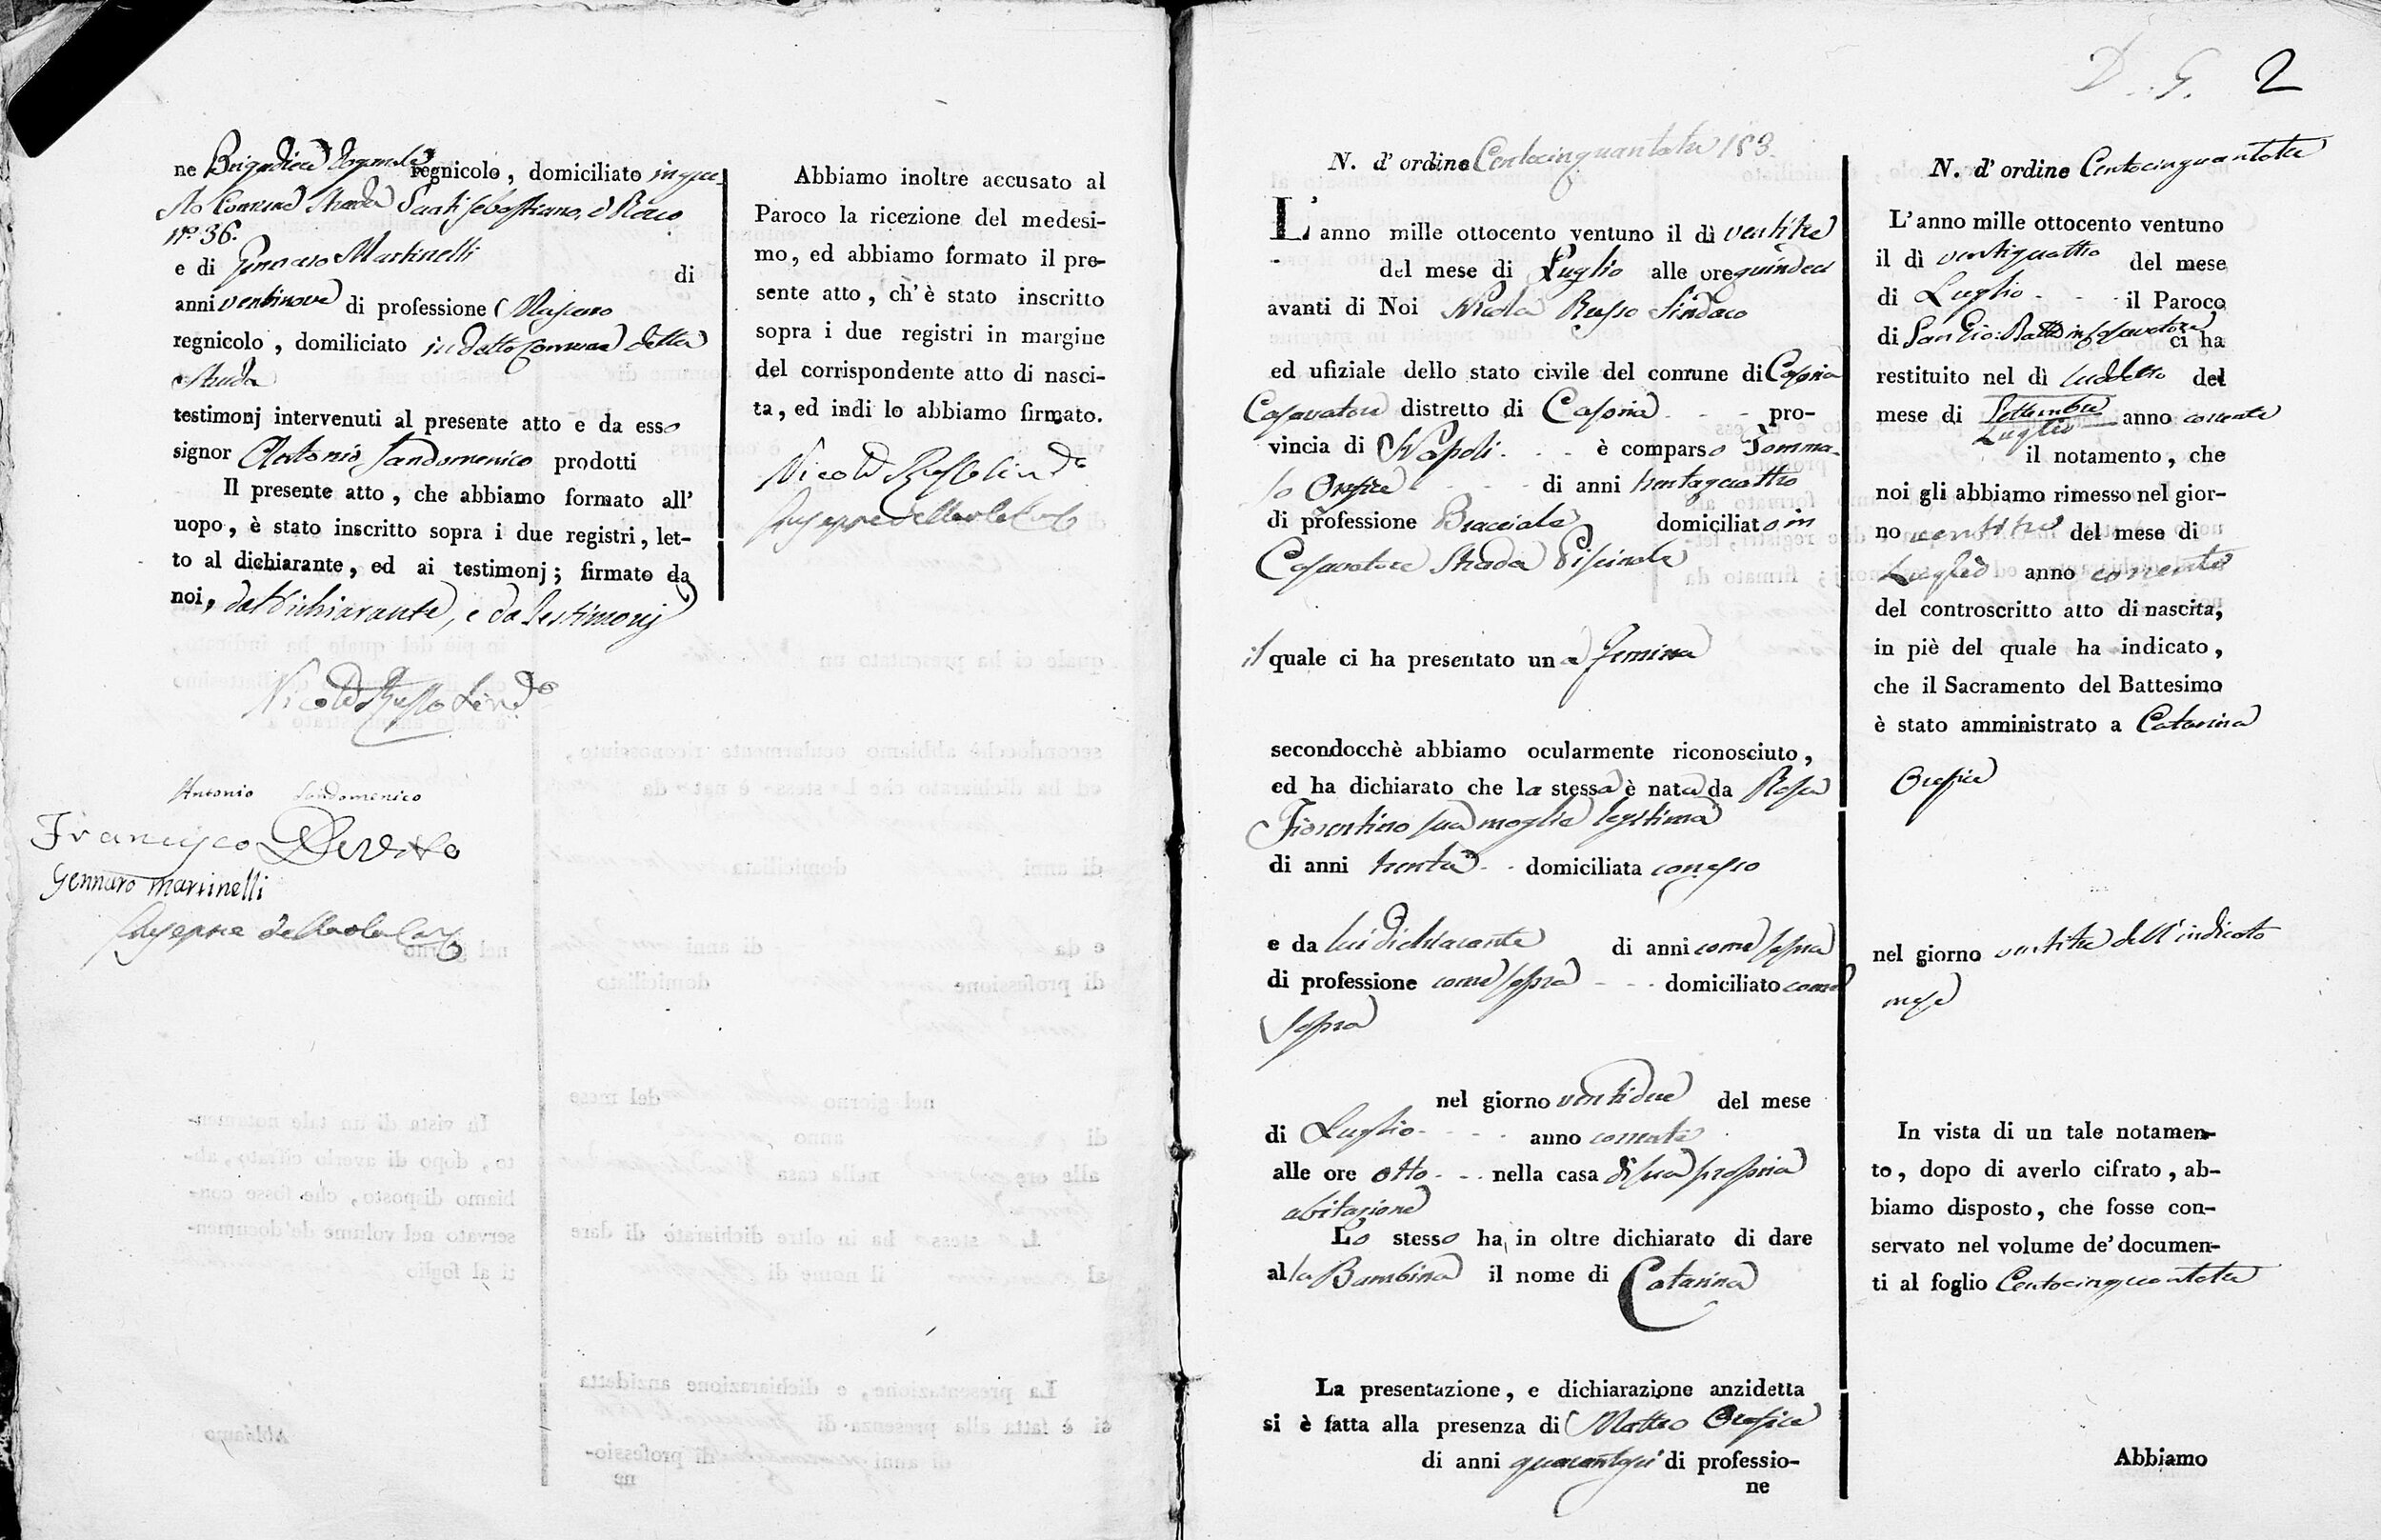 ne Brigadiere regnicolo, domiciliato in que-
sto Comune Strada Santi Sebastiano, e Rocco
n.° 36.
e di Gennaro Martinelli di
anni ventinove di professione
regnicolo, domiliciato in detto Comune detta
Strada
testimonj intervenuti al presente atto e da esso
signor Antonio Sandomenico prodotti
Il presente atto, che abbiamo formato all'
uopo, è stato inscritto sopra i due registri, let-
to al dichiarante, ed ai testimonj; firmato da
noi, dal dichiarante, e da testimonj
Nicola Russo Sind.co
Antonio Sandomenico
Francesco De Vivo
Gennaro martinelli
Giuseppe
Abbiamo inoltre accusato al
Paroco la ricezione del medesi-
mo, ed abbiamo formato il pre-
sente atto, ch'è stato inscritto
sopra i due registri in margine
del corrispondente atto di nasci-
ta, ed indi lo abbiamo firmato.
Nicola Russo Sind.co
Giuseppe
2
N. d'ordine Centocinquantatre 153.
L'anno mille ottocento ventuno il dì ventitre
del mese di Luglio alle ore quindeci
avanti di Noi Nicola Russo Sindaco
ed ufiziale dello stato civile del comune di Casoria
Casavatore distretto di Casoria - - pro-
vincia di Napoli. - - è comparso Tomma-
so Orefice - - - di anni trentaquattro
di professione Bracciale domiciliato in
Casavatore Strada Piscinale
il quale ci ha presentato una femina
secondocchè abbiamo ocularmente riconosciuto,
ed ha dichiarato che la stessa è nata da Rosa
Fiorentino sua moglie legitima
di anni trenta - - domiciliata con esso
e da lui dichiarante di anni come sopra
di professione come sopra - - - domiciliato come
sopra
nel giorno ventidue del mese
di Luglio - - - - anno corrente
alle ore otto - - - nella casa di sua propria
abitazione
Lo stesso ha in oltre dichiarato di dare
alla Bambina il nome di Catarina
La presentazione, e dichiarazione anzidetta
si è fatta alla presenza di Matteo Orefice
di anni di professio-
ne
N. d'ordine Centocinquantatre
L'anno mille ottocento ventuno
il dì ventiquattro del mese
di Luglio - - - il Paroco
di San Gio: Batt.a in Casavatore ci ha
restituito nel dì suddetto del
mese di Settembre anno corrente
Luglio
il notamento, che
noi gli abbiamo rimesso nel gior-
no ventitre del mese di
Luglio anno corrente
del controscritto atto di nascita,
in piè del quale ha indicato,
che il Sacramento del Battesimo
è stato amministrato a Catarina
Orefice
nel giorno ventitre dell'indicato
mese
In vista di un tale notamen-
to, dopo di averlo cifrato, ab-
biamo disposto, che fosse con-
servato nel volume de'documen-
ti al foglio Centocinquantatre
Abbiamo